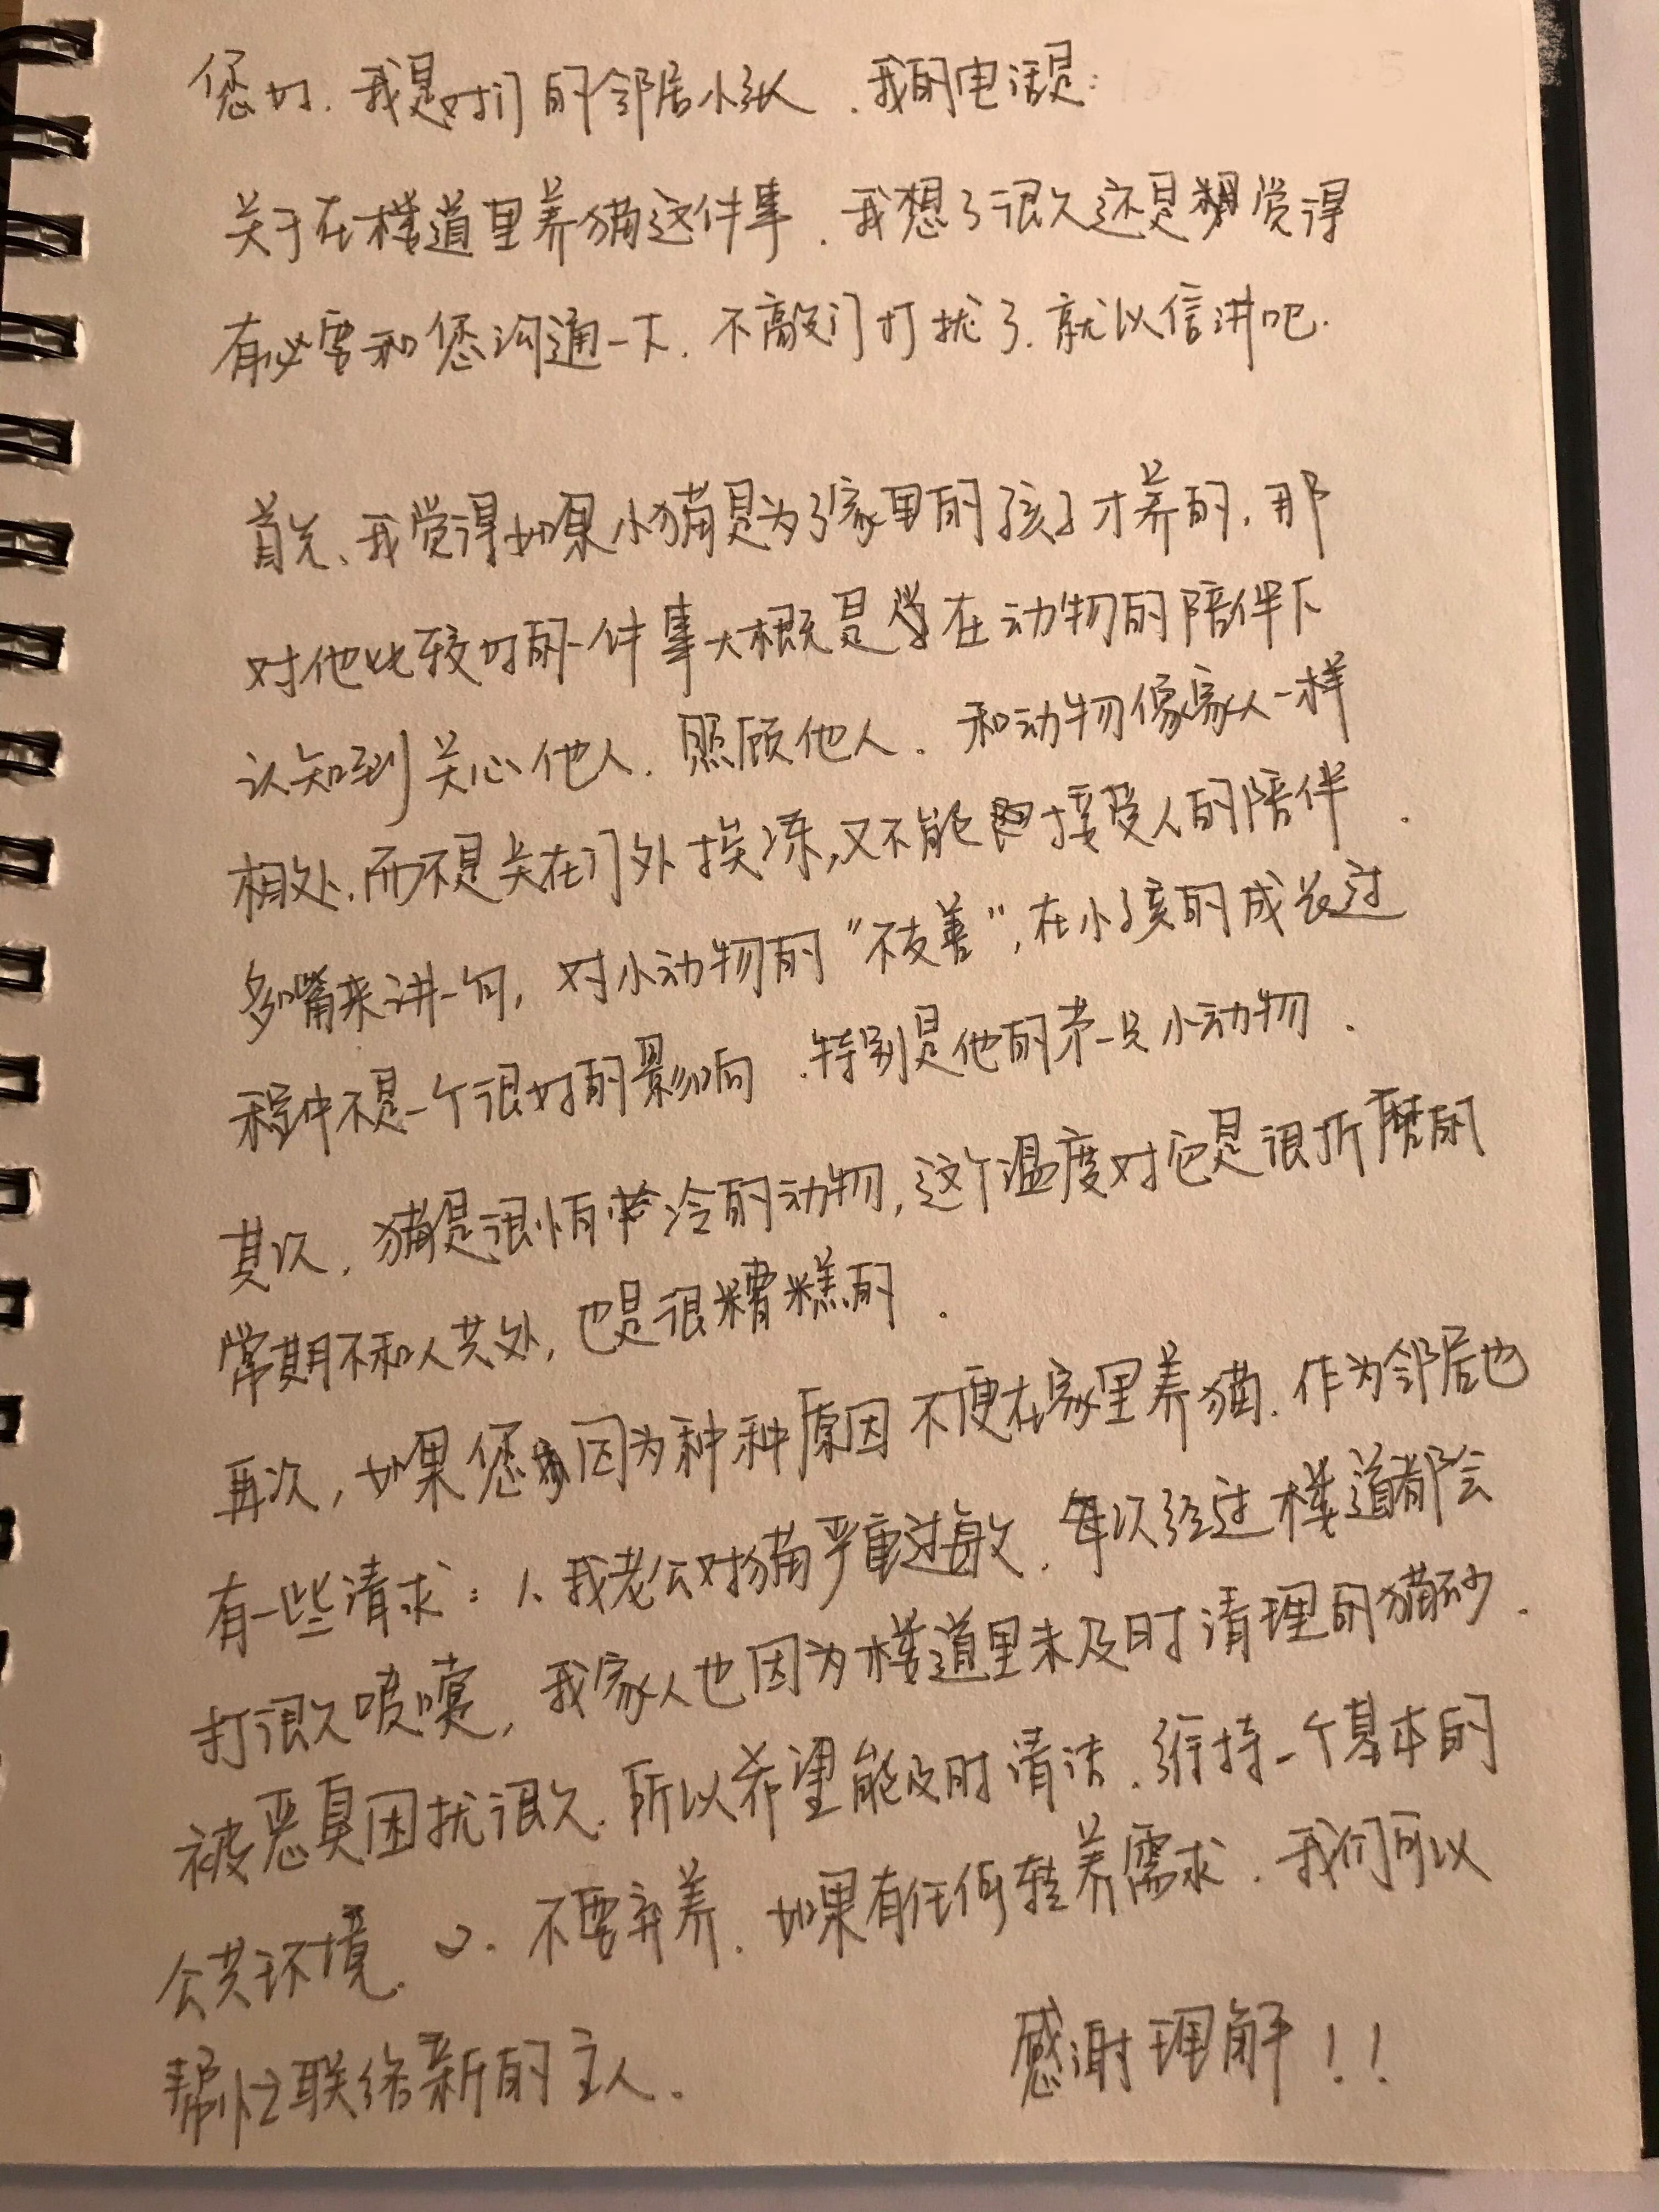 您好，我是对门的邻居小张，我的电话是：
关于在楼道里养猫这件事，我想了很久还是觉得
有必要和您沟通一下，不敲门打扰了，就以信讲吧.
首先、我觉得如果小猫是为了家里的孩子才养的，那
对他比较好的一件事大概是在动物的陪伴下
认知到关心他人，照顾他人，和动物像家人一样
相处，而不是关在门外挨冻，又不能接受人的陪伴.
多嘴来讲一句，对小动物的“不友善”，在小孩的成长过
程中不是一个很好的影响.特别是他的第一只小动物.
其次，猫是很怕冷的动物，这个温度对它是很折磨的
常期不和人共处，也是很糟糕的.
再次，如果您因为种种原因不便在家里养猫，作为邻居也
有一些请求：1、我老公对猫严重过敏，每次经过楼道都会
打很久喷嚏，我家人也因为楼道里未及时清理的猫砂.
被恶臭困扰很久.所以希望能及时清洁，维持一个基本的
公共环境. 2. 不要弃养，如果有任何转养需求，我们可以
帮忙联络新的主人. 感谢理解！！